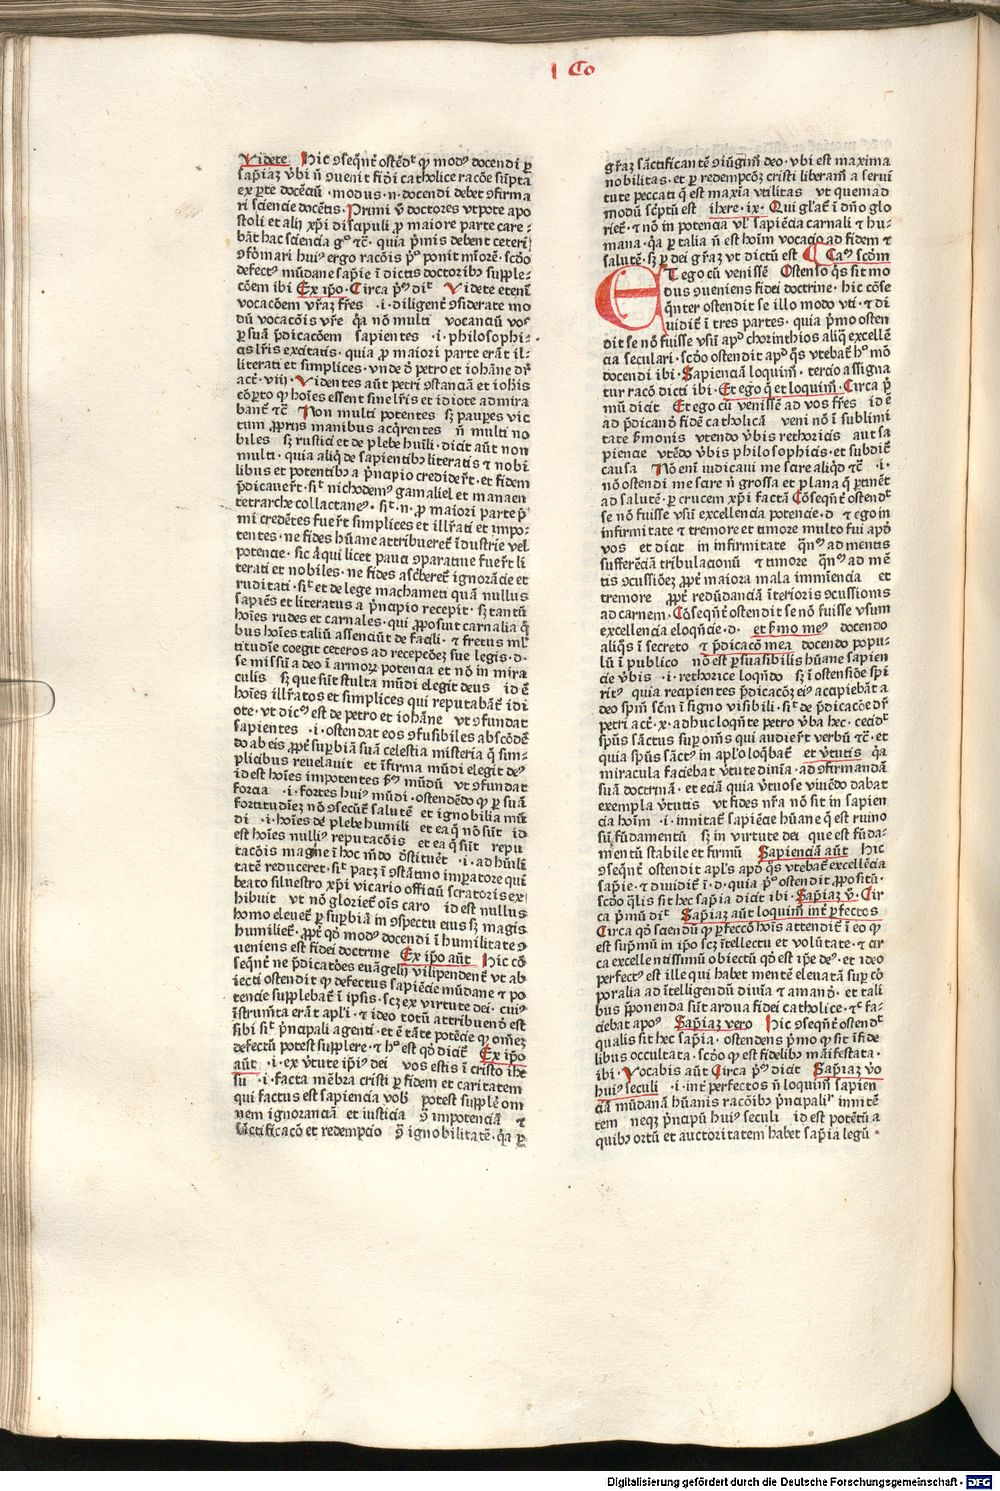 I Co
Videte Hic ↄseqn̄t ostēdt̄ ꝙ modꝰ docendi ꝑ
sapīaꝫ v̄bi n̄ ↄuenit fidei catholice racōe sūpta
ex ꝑte docēciū ·modus ·n· docendi debet ↄfirma
ri sciencie docētis· Primi v̄ doctores vtpote apo
stoli et alij xp̄i discipuli ꝓ maiore parte care·
bāt hac sciencia gº ⁊c̄· quia p̄mis debent ceteri
ↄfōmari huiꝰ ergo racōis pº ponit mīorē· scdo
defectꝰ mūdane sapīe ī dictis doctoribꝰ supple·
cōem ibi Ex ip̄o· Circa pº dīt Videte etenī
vocacōem vr̄aꝫ fr̄es ·i· diligent̄ ↄsiderate mo
dū vocacōis vr̄e q̄a nō multi vocanciū vos
ꝑ suā p̄dicacōem sapientes ·i· philosophi·
cis lr̄is excitatis· quia ꝓ maiori parte erāt il·
literati et simplices· vnde ō petro et iohāne dr̄
act̄· viij· Videntes aūt petri ↄstanciā et ioh̄is
cōꝑto ꝙ hoīes essent sine lr̄is et idiote admira
bant̄ ⁊c̄ Non multi potentes sꝫ pauꝑes vic
tum ꝓprijs manibus acq̄rentes n̄ multi no
biles sꝫ rustici et de plebe huīli· dicit aūt non
multi· quia aliq̄ de sapientibꝰ literatis ⁊ nobi
libus et potentibꝰ a p̄ncipio credider̄t· et fidem
p̄dicauer̄t· sīt nichodemꝰ gamaliel et manaen
tetrarche collactaneꝰ· sīt ·n· ꝓ maiori parte p̄
mi credētes fuer̄t simplices et illr̄ati et impo·
tentes· ne fides hūane attribueret̄ īdustrie vel
potencie· sic āqui licet pauci ↄparatiue fuer̄t li
terati et nobiles· ne fides asc̄beret̄ ignorācie et
ruditati· sīt et de lege machameti quā nullus
sapiēs et literatus a p̄ncipio recepit· sꝫ tantū
hoīes rudes et carnales· qui ꝓposuit carnalia q̄
bus hoīes taliū assenciūt de facili· ⁊ fretus ml̄
titudīe coegit ceteros ad recepcōeꝫ sue legis· d·
se missū a deo ī armoꝝ potencia et nō in mira
culis sꝫ que sūt stulta mūdi elegit deus id ē
hoīes illr̄atos et simplices qui reputabāt̄ idi
ote· vt dicꝰ est de petro et iohāne vt ↄfundat
sapientes ·i· ostendat eos ↄfusibiles abscōdē
do ab eis ꝓpt̄ suꝑbiā suā celestia misteria q̄ sim·
plicibus reuelauit et īfirma mūdi elegit deꝰ
id est hoīes impotentes sm̄ mūdū vt ↄfundat
forcia ·i· fortes huiꝰ mūdi· ostendēdo ꝙ ꝑ suā
fortitudīeꝫ nō ↄsecut̄ salutē et ignobilia mū
di ·i· hoīes de plebe humili et ea q̄ nō sūt id
est hoīes nulliꝰ reputacōis et ea q̄ sūt repu
tacōis magne ī hoc mūdo d̄stituēt ·i· ad hūili
tatē reduceret· sīt patꝫ ī ↄstātino imꝑatore qui
beato siluestro xp̄i vicario officiū scratoris ex
hibuit vt nō gloriet̄ oīs caro id est nullus
homo eleuet̄ ꝑ suꝑbiā in ↄspectu eius sꝫ magis
humiliet̄· ꝓpt̄ qº modꝰ docendi ī humilitate ↄ
ueniens est fidei doctrine Ex ip̄o aūt Hic cō
seqn̄t ne p̄dicatōes euāgelij vilipendent̄ vt ab
iecti ostendit ꝙ defectus sapīecie mūdane ⁊ po
tencie supplebat̄ ī ipsis· scꝫ ex virtute dei· cuiꝰ
īstrumēta erāt apl̄i· ⁊ ideo totū attribuendo est
sibi sīt p̄ncipali agenti· et ē tāte potēcie ꝙ om̄eꝫ
defectū potest supplere· ⁊ hº est qd̄ dicit̄ Ex ip̄o
aūt ·i· ex v̄tute ip̄iꝰ dei vos estis ī cristo ihe
su ·i· facta mēbra cristi ꝑ fidem et caritatem
qui factus est sapiencia vob̄ potest supplē om
nem ignoranciā et iusticia ꝙ̄ impotenciā ⁊
sāctificacō et redempcio ꝙ̄ ignobilitatē· q̄a ꝑ
gr̄aꝫ sāctificantē ↄiūgim̄ deo· vbi est maxima
nobilitas· et ꝑ redempcōꝫ cristi liberam̄ a serui
tute peccati q̄ est maxīa vtilitas vt quemad
modū sc̄ptū est ihere· ix· Qui gl̄at̄ ī dn̄o glo
riet̄ ⁊ nō in potencia vl̄ sapiēcia carnali ⁊ hu·
mana· q̄a ꝑ talia n̄ est hoīm vocacio ad fidem ⁊
salutē· sꝫ ꝑ dei gr̄aꝫ vt dictū est Cam̄ scdm
ET ego cū venissē Ostenso q̄s sit mo
dus ↄueniens fidei doctrine· hic cōse
q̄nter ostendit se illo modo vti· ⁊ di
uidit̄ ī tres partes· quia p̄mo osten
dit se nō fuisse vsū apd̄ chorinthios aliq̄ excellē
cia seculari· scdo ostendit apd̄ q̄s vtebat̄ hº mō
docendi ibi· Sapienciā loquim̄· tercio assigna
tur racō dicti ibi· Et ego q̄ et loquim̄· Circa p̄
mū dicit Et ego cū venissē ad vos fr̄es id ē
ad p̄dicandº fidē catholicā veni nō ī sublimi
tate s̄monis vtendo v̄bis rethoricis aut sa
piencie vtēdo v̄bis philosophicis· et subdit̄
causa Nō enī iudicaui me scire aliqd̄ ⁊c̄ ·i·
nō ostendi me scire n̄ grossa et plana q̄ ꝑtinēt
ad salutē· ꝑ crucem xp̄i factā Cōseqn̄t ostendt̄
se nō fuisse vsū excellencia potencie· d· ⁊ ego in
infirmitate ⁊ tremore et timore multo fui apd̄
vos et dicit in infirmitate q̄nꝰ ad mentis
sufferēciā tribulacionū ⁊ timore q̄nꝰ ad mē
tis ↄcussiōeꝫ ꝓpt̄ maiora mala immīencia et
tremore ꝓpt̄ redūdanciā īterioris ↄcussionis
ad carnem· Cōseqn̄t ostendit se nō fuisse vsum
excellencia eloqn̄cie· d· et s̄mo meꝰ docendo
aliq̄s ī secreto ⁊ p̄dicacō mea docendo popu·
lū ī publico nō est ꝑsuasibilis hūane sapien
cie v̄bis ·i· rethorice loqn̄do sꝫ ī ostensiōe spi
ritꝰ quia recipientes p̄dicacōꝫ eiꝰ accipiebāt a
deo sp̄m sc̄m ī signo visibili· sīt de p̄dicacōe dr̄
petri act̄· x· adhuc loqn̄te petro v̄ba hec· cecidt̄
sp̄us sāctus suꝑ om̄s qui audier̄t verbū ⁊c̄· et
quia sp̄us sāctꝰ in apl̄o loq̄bat̄ et v̄tutis q̄a
miracula faciebat v̄tute diuīa· ad ↄfirmandā
suā doctrinā· et eciā quia v̄tuose viuēdo dabat
exempla v̄tutis vt fides nr̄a nō sit in sapien
cia hoīm ·i· innitat̄ sapiēcie hūane q̄ est ruino
sū fūdamentū sꝫ in virtute dei que est fūda·
mentū stabile et firmū Sapienciā aūt Hic
ↄseqn̄t ostendit apl̄s apd̄ q̄s vtebat̄ excellēcia
sapīe· ⁊ diuidit̄ ī· d· quia pº ostendit ꝓpositū·
scdo q̄lis sit hec sapīa dicit ibi· Sapīaꝫ v̄· Cir
ca p̄mū dīt Sapīaꝫ aūt loquim̄ int̄ ꝑfectos
Circa qd̄ sciendū ꝙ ꝑfeccō hoīs attendit̄ ī eo ꝙ
est supmū in ip̄o scꝫ ītellectu et volūtate· ⁊ cir
ca excellentissimū obiectū qd̄ est ip̄e deꝰ· et ideo
perfectꝰ est ille qui habet mentē eleuatā suꝑ cō
poralia ad ītelligendū diuīa ⁊ amandº· et tali
bus ꝓponenda sūt ardua fidei catholice· ⁊ sīc fa·
ciebat apoꝰ Sapīaꝫ vero Hic ↄseqn̄t ostendt̄
qualis sit hec sapīa· ostendens p̄mo ꝙ sit īfide
libus occultata· scdo ꝙ est fidelibꝰ māifestata·
ibi· Vocabis aūt Circa pº dicit Sapīaꝫ v̄o
huiꝰ seculi ·i· int̄ perfectos n̄ loquim̄ sapien
ciā mūdanā hūanis racōibꝰ p̄ncipalit̄ innitē
tem neqꝫ p̄ncipū huiꝰ seculi id est potētū a
quibꝰ ortū et auctoritatem habet sapīa legū·
Digitalisierung gefördert durch die Deutsche Forschungsgemeinschaft · DFG